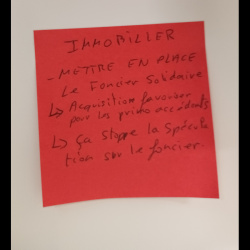 IMMOBILIER
- METTRE EN PLACE
Le Foncier Solidaire
↳ Acquisition favoriser
pour les primo accédants
↳ ça stoppe la Spécula
tion sur le foncier.